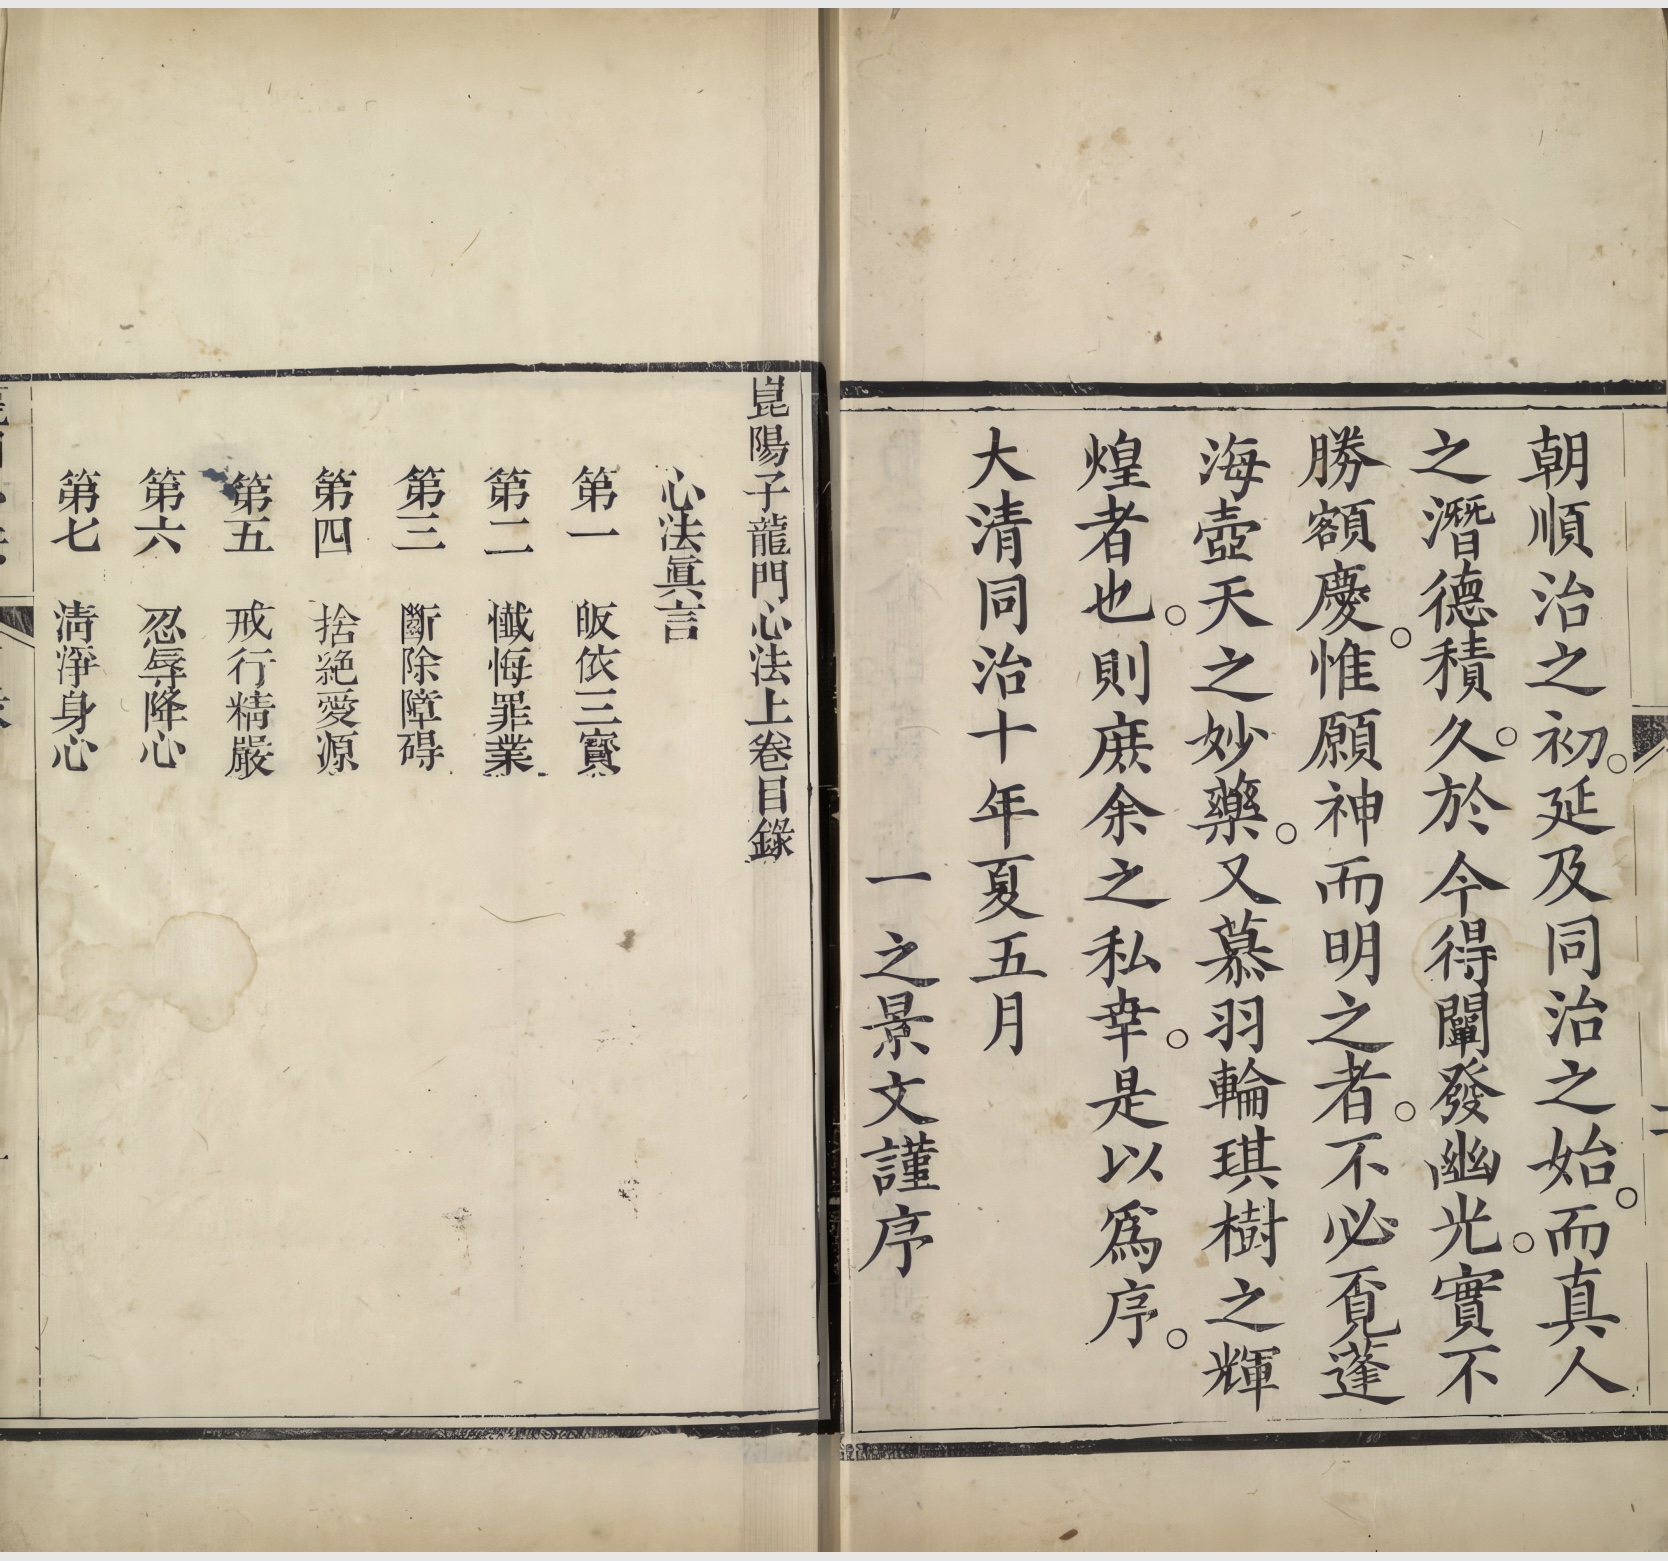 朝順治之初。延及同治之始。而真人
之潛德積久。於今得闡發幽光。實不
勝額慶。惟願神而明之者。不必覔蓬
海壺天之妙藥。又慕羽輪琪樹之輝
煌者也。則庶余之私幸。是以爲序。
大清同治十年夏五月
一之景文謹序
二
崑陽子龍門心法上卷目錄
心法眞言
第一 皈依三寳
第二 懺悔罪業
第三 斷除障碍
第四 捨絕愛源
第五 戒行精嚴
第六 忍辱降心
第七 清淨身心